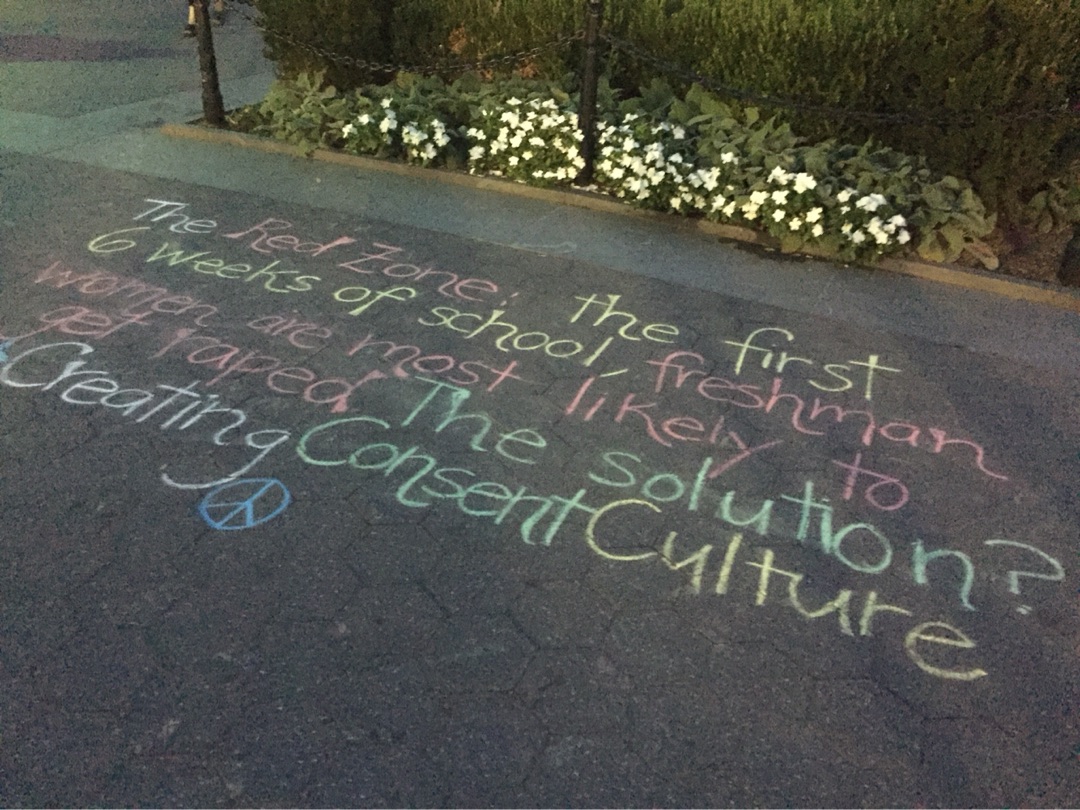 The Red Zone: the first
6 weeks of school, freshman
women are most likely to
get raped The solution?
Creating Consent Culture